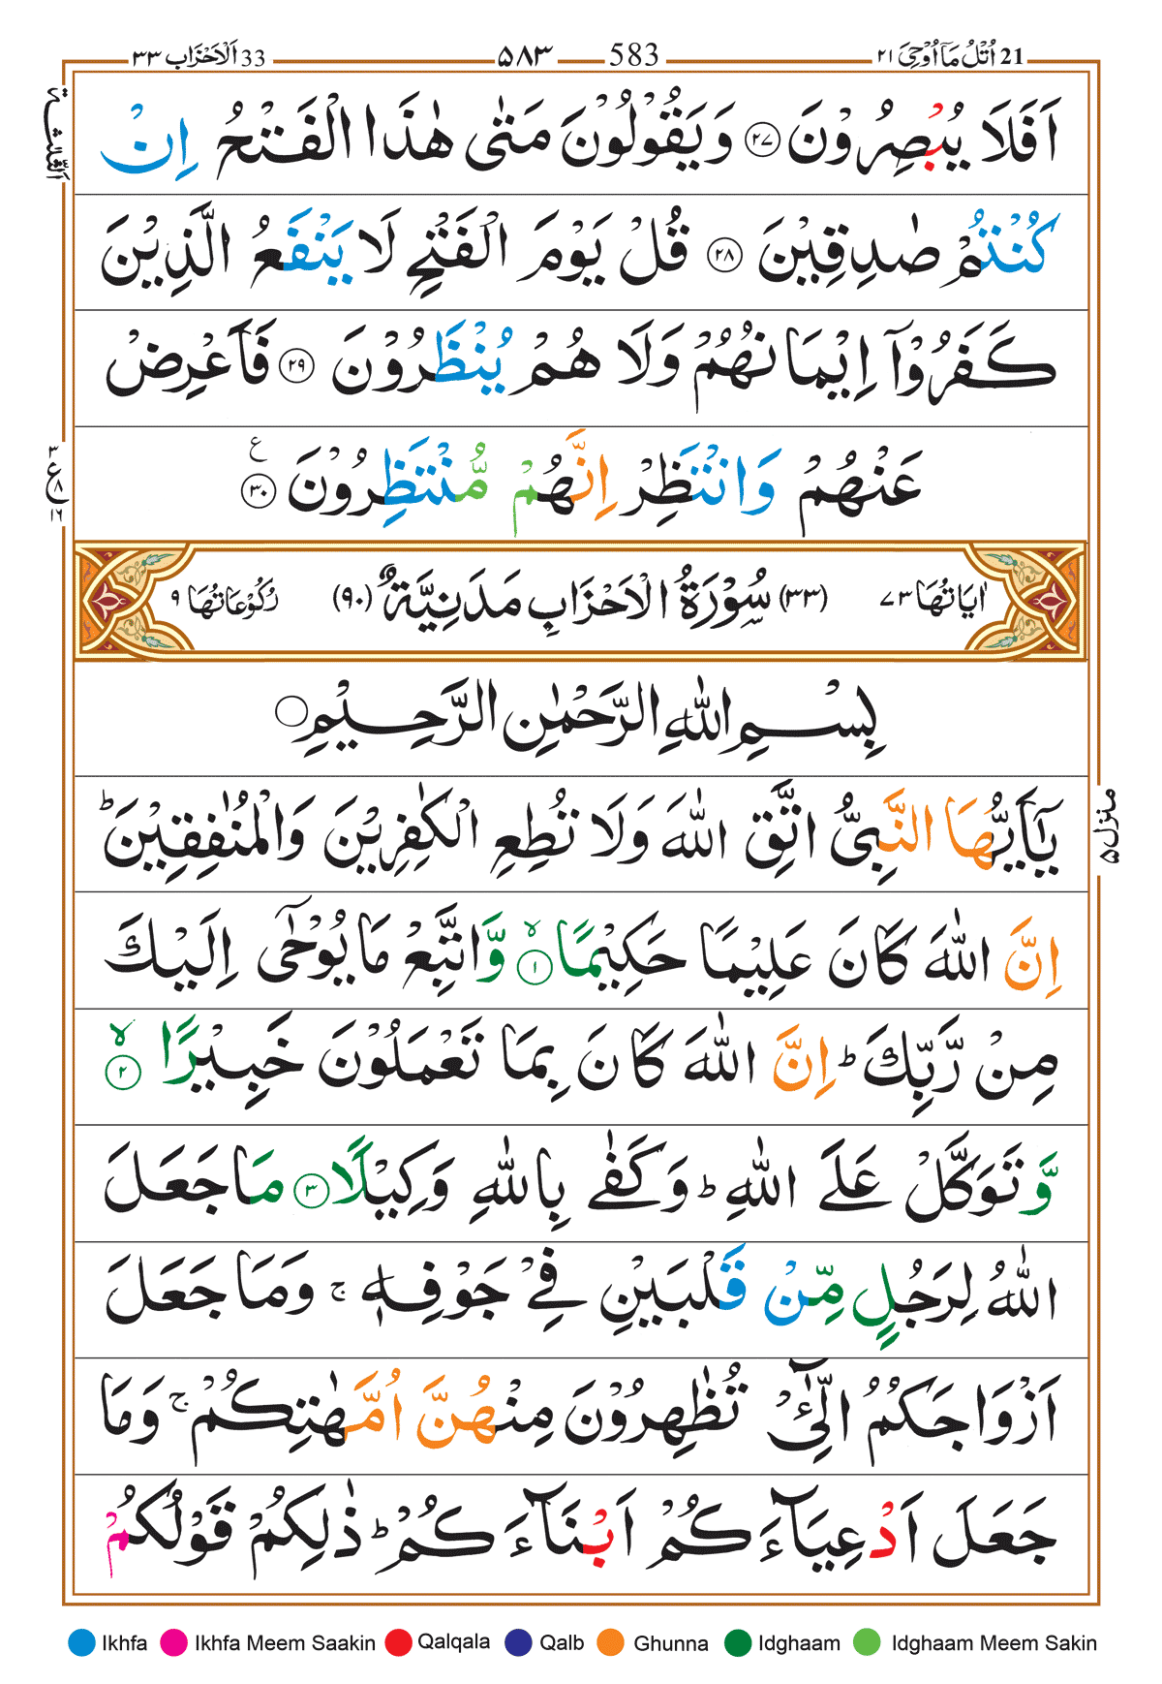 اَلْاَحْزَاب ٣٣ 33 ۵۸۳ 583 اُتْلُ مَاۤ اُوْحِیَ ٢١ 21
اَفَلَا یُبْصِرُوْنَ ﴿۲۷﴾ وَیَقُوْلُوْنَ مَتٰی هٰذَا الْفَتْحُ اِنْ
كُنْتُمْ صٰدِقِیْنَ ﴿۲۸﴾ قُلْ یَوْمَ الْفَتْحِ لَا یَنْفَعُ الَّذِیْنَ
كَفَرُوْۤا اِیْمَانُهُمْ وَلَا هُمْ یُنْظَرُوْنَ ﴿۲۹﴾ فَاَعْرِضْ
عَنْهُمْ وَانْتَظِرْ اِنَّهُمْ مُّنْتَظِرُوْنَ ﴿۳۰﴾ ع
اٰیَاتُهَا ۷۳ (۳۳) سُوْرَةُ الْاَحْزَابِ مَدَنِیَّةٌ (۹۰) رُكُوْعَاتُهَا ۹
بِسْمِ اللّٰهِ الرَّحْمٰنِ الرَّحِیْمِ
یٰۤاَیُّهَا النَّبِیُّ اتَّقِ اللّٰهَ وَلَا تُطِعِ الْكٰفِرِیْنَ وَالْمُنٰفِقِیْنَ ؕ
اِنَّ اللّٰهَ كَانَ عَلِیْمًا حَكِیْمًا ﴿۱﴾ۙ وَّاتَّبِعْ مَا یُوْحٰۤی اِلَیْكَ
مِنْ رَّبِّكَ ؕ اِنَّ اللّٰهَ كَانَ بِمَا تَعْمَلُوْنَ خَبِیْرًا ﴿۲﴾ۙ
وَّتَوَكَّلْ عَلَی اللّٰهِ ؕ وَكَفٰی بِاللّٰهِ وَكِیْلًا ﴿۳﴾ مَا جَعَلَ
اللّٰهُ لِرَجُلٍ مِّنْ قَلْبَیْنِ فِیْ جَوْفِهٖ ۚ وَمَا جَعَلَ
اَزْوَاجَكُمُ الّٰٓـِٔیْ تُظٰهِرُوْنَ مِنْهُنَّ اُمَّهٰتِكُمْ ۚ وَمَا
جَعَلَ اَدْعِیَآءَكُمْ اَبْنَآءَكُمْ ؕ ذٰلِكُمْ قَوْلُكُمْ
الثلثة
۳ ع ۸ ۱۶
منزل ۵
Ikhfa Ikhfa Meem Saakin Qalqala Qalb Ghunna Idghaam Idghaam Meem Sakin